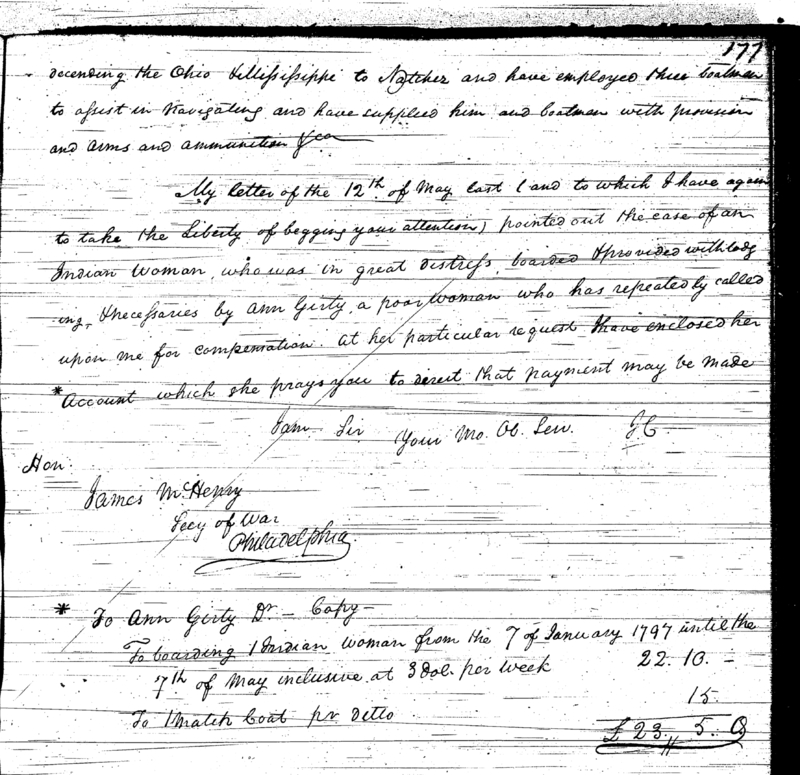 177
decending the Ohio & Missisippi to Natchez and have employed three boatmen
to assist in Navigating and have supplied him and boatmen with provision
and arms and ammunition &ca
My letter of the 12th of May last (and to which I have again
to take the Liberty of begging your attention) pointed out the case of an
Indian woman, who was in great distress, boarded & provided with lodg
ing, & necessaries by Ann Girty, a poor woman who has repeatedly called
upon me for compensation. at her particular request I have enclosed her
* Account which she prays you to direct that payment may be made
I am Sir Your Mo. Ob. Serv. J C
Hon.
James McHenry
Secy of War
Philadelphia
* To Ann Girty Dr. - Copy -
To boarding 1 Indian woman from the 7 of January 1797 until the
7th of May inclusive at 3 Dol. per week 22. 10. -
15
To 1 Match Coat pr ditto
£ 23. 5. 0